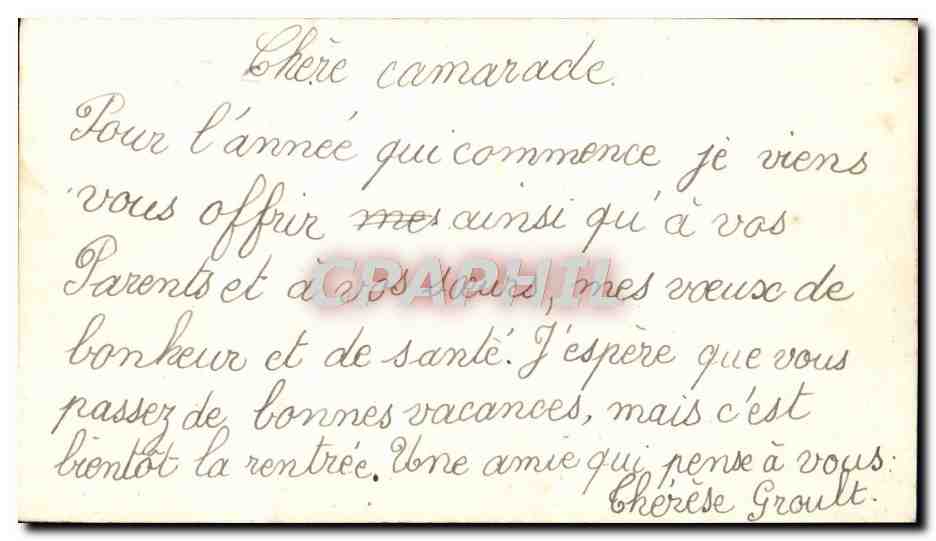 Chère camarade.
Pour l'année qui commence je viens
vous offrir mes ainsi qu'à vos
Parents et à vos sœurs, mes vœux de
bonheur et de santé. J'espère que vous
passez de bonnes vacances, mais c'est
bientôt la rentrée. Une amie qui pense à vous:
Thérèse Groult.
CPAPHIL